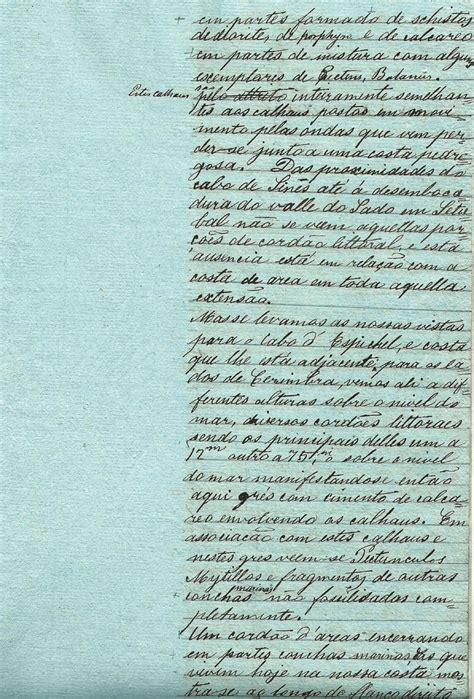 em partes formado de schistos
de diorite, de porphyr. e de calcareo
em partes de mistura com alguns
exemplares de Pectens, Balanus.
Estes calhaus
são pelo attrito inteiramente semelhan-
tes aos calhaus postos em movi-
mento pelas ondas que vem per-
der-se junto a uma costa pedre-
gosa. Das proximidades do
cabo de Sines até á desemboca-
dura do valle do Sado em Setu-
bal não se vem aquellas por-
ções de cordão littoral, e esta
ausencia está em relação com a
costa de area em toda aquella
extensão.
Mas se levamos as nossas vistas
para o Cabo d'Espichel, e costa
que lhe está adjacente para os la-
dos de Cezimbra, vemos ali a dif-
ferentes alturas sobre o nivel do
mar, diversos cordões littoraes
sendo os principaes delles um a
17m outro a 75m,0 sobre o nivel
do mar manifestandose então
aqui gres com cimento de calca-
reo envolvendo os calhaus. Em
associação com estes calhaus e
nestes gres veem-se Pectunculos
Mytillos e fragmentos de outras
conchas marinas não fossilidadas com-
pletamente.
Um cordão d'áreas encerrando
em partes conchas marinas das que
vivem hoje na nossa costa mos-
tra-se ao longo de